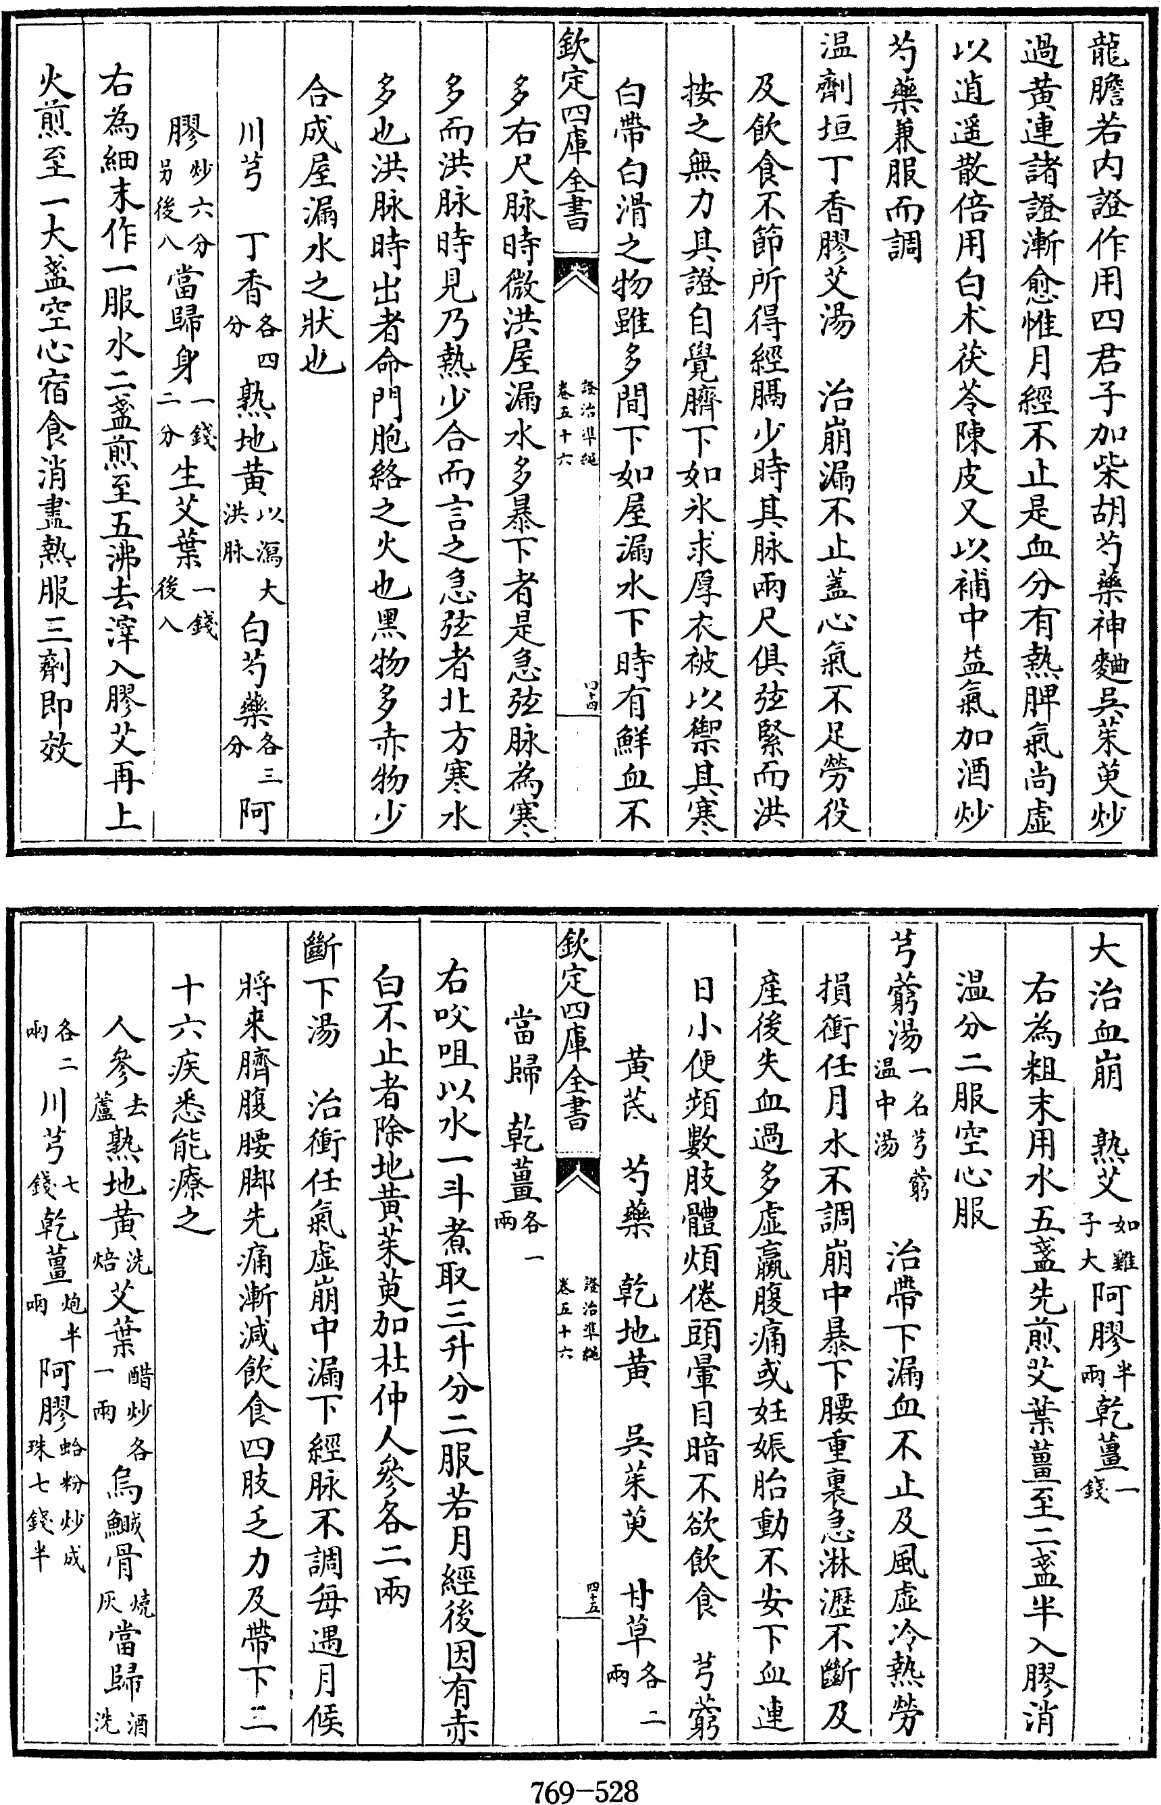 龍膽若内證作用四君子加柴胡芍藥神麯吳茱萸炒
過黄連諸證漸愈惟月經不止是血分有熱脾氣尚虚
以逍遥散倍用白术茯苓陳皮又以補中益氣加酒炒
芍藥兼服而調
温劑垣丁香膠艾湯　治崩漏不止蓋心氣不足勞役
及飲食不節所得經膈少時其脉兩尺俱弦緊而洪
按之無力其證自覺臍下如氷求厚衣被以禦其寒
白帶白滑之物雖多間下如屋漏水下時有鮮血不
欽定四庫全書
證治準繩
卷五十六
四十四
多右尺脉時微洪屋漏水多暴下者是急弦脉為寒
多而洪脉時見乃熱少合而言之急弦者北方寒水
多也洪脉時出者命門胞絡之火也黑物多赤物少
合成屋漏水之狀也
川芎　丁香各四分　熟地黄以瀉大洪脉　白芍藥各三分　阿
膠炒六分另後入　當歸身一錢二分　生艾葉一錢後入
右為細末作一服水二盞煎至五沸去滓入膠艾再上
火煎至一大盞空心宿食消盡熱服三劑即效
大治血崩　熟艾如雞子大　阿膠半兩　乾薑一錢
右為粗末用水五盞先煎艾葉薑至二盞半入膠消
温分二服空心服
芎藭湯一名芎藭温中湯　治帶下漏血不止及風虚冷熱勞
損衝任月水不調崩中暴下腰重裏急淋瀝不斷及
産後失血過多虚羸腹痛或妊娠胎動不安下血連
日小便頻數肢體煩倦頭暈目暗不欲飲食　芎藭
黄芪　芍藥　乾地黄　吳茱萸　甘草各二兩
欽定四庫全書
證治準繩
卷五十六
四十五
當歸　乾薑各一兩
右咬咀以水一斗煮取三升分二服若月經後因有赤
白不止者除地黄茱萸加杜仲人參各二兩
斷下湯　治衝任氣虚崩中漏下經脉不調每遇月候
將来臍腹腰脚先痛漸減飲食四肢乏力及帶下三
十六疾悉能療之
人參去蘆　熟地黄洗焙　艾葉醋炒各一兩　烏鰂骨燒灰　當歸酒洗
各二兩　川芎七錢　乾薑炮半兩　阿膠蛤粉炒成珠七錢半
769-528